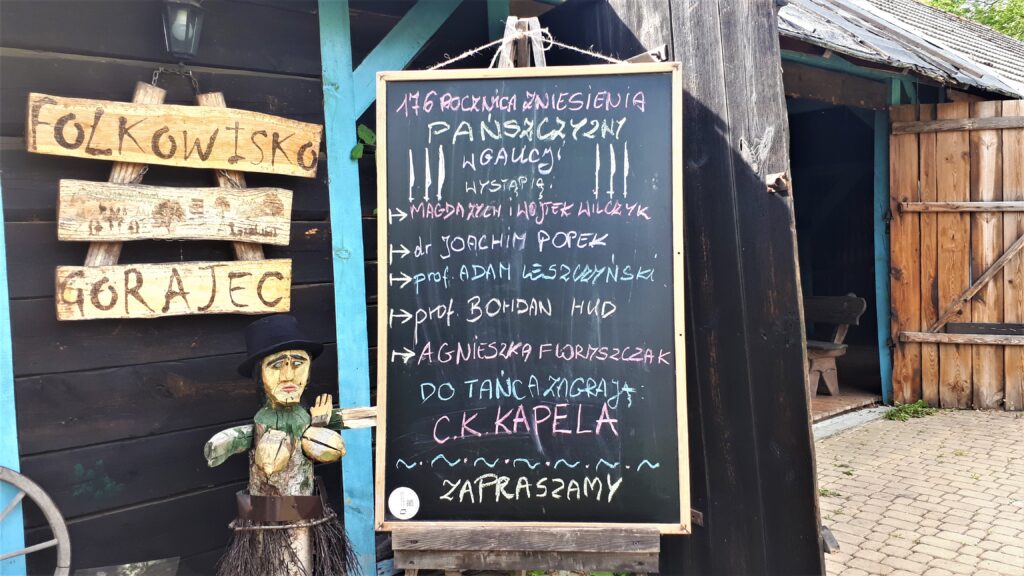 FOLKOWISKO
GORAJEC
176 ROCZNICA ZNIESIENIA
PAŃSZCZYZNY
W GALICJI
WYSTĄPIĄ:
MAGDA ZYCH i WOJTEK WILCZYK
dr JOACHIM POPEK
prof. ADAM LESZCZYŃSKI
prof. BOHDAN HUD
AGNIESZKA FLORYSZCZAK
DO TAŃCA ZAGRAJĄ:
C.K. KAPELA
ZAPRASZAMY